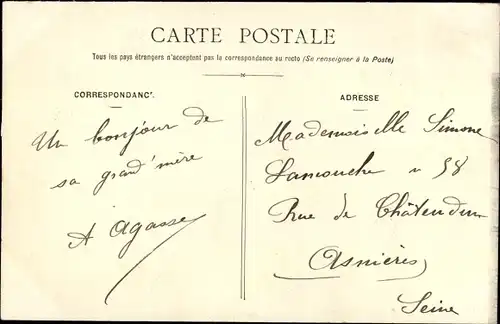 CARTE POSTALE
Tous les pays étrangers n'acceptent pas la correspondance au recto (Se renseigner à la Poste)
CORRESPONDANCE
Un bonjour de
sa grand'mère
A Agasse
ADRESSE
Mademoiselle Simone
Lamouche n 58
Rue de Châteaudun
Asnières
Seine